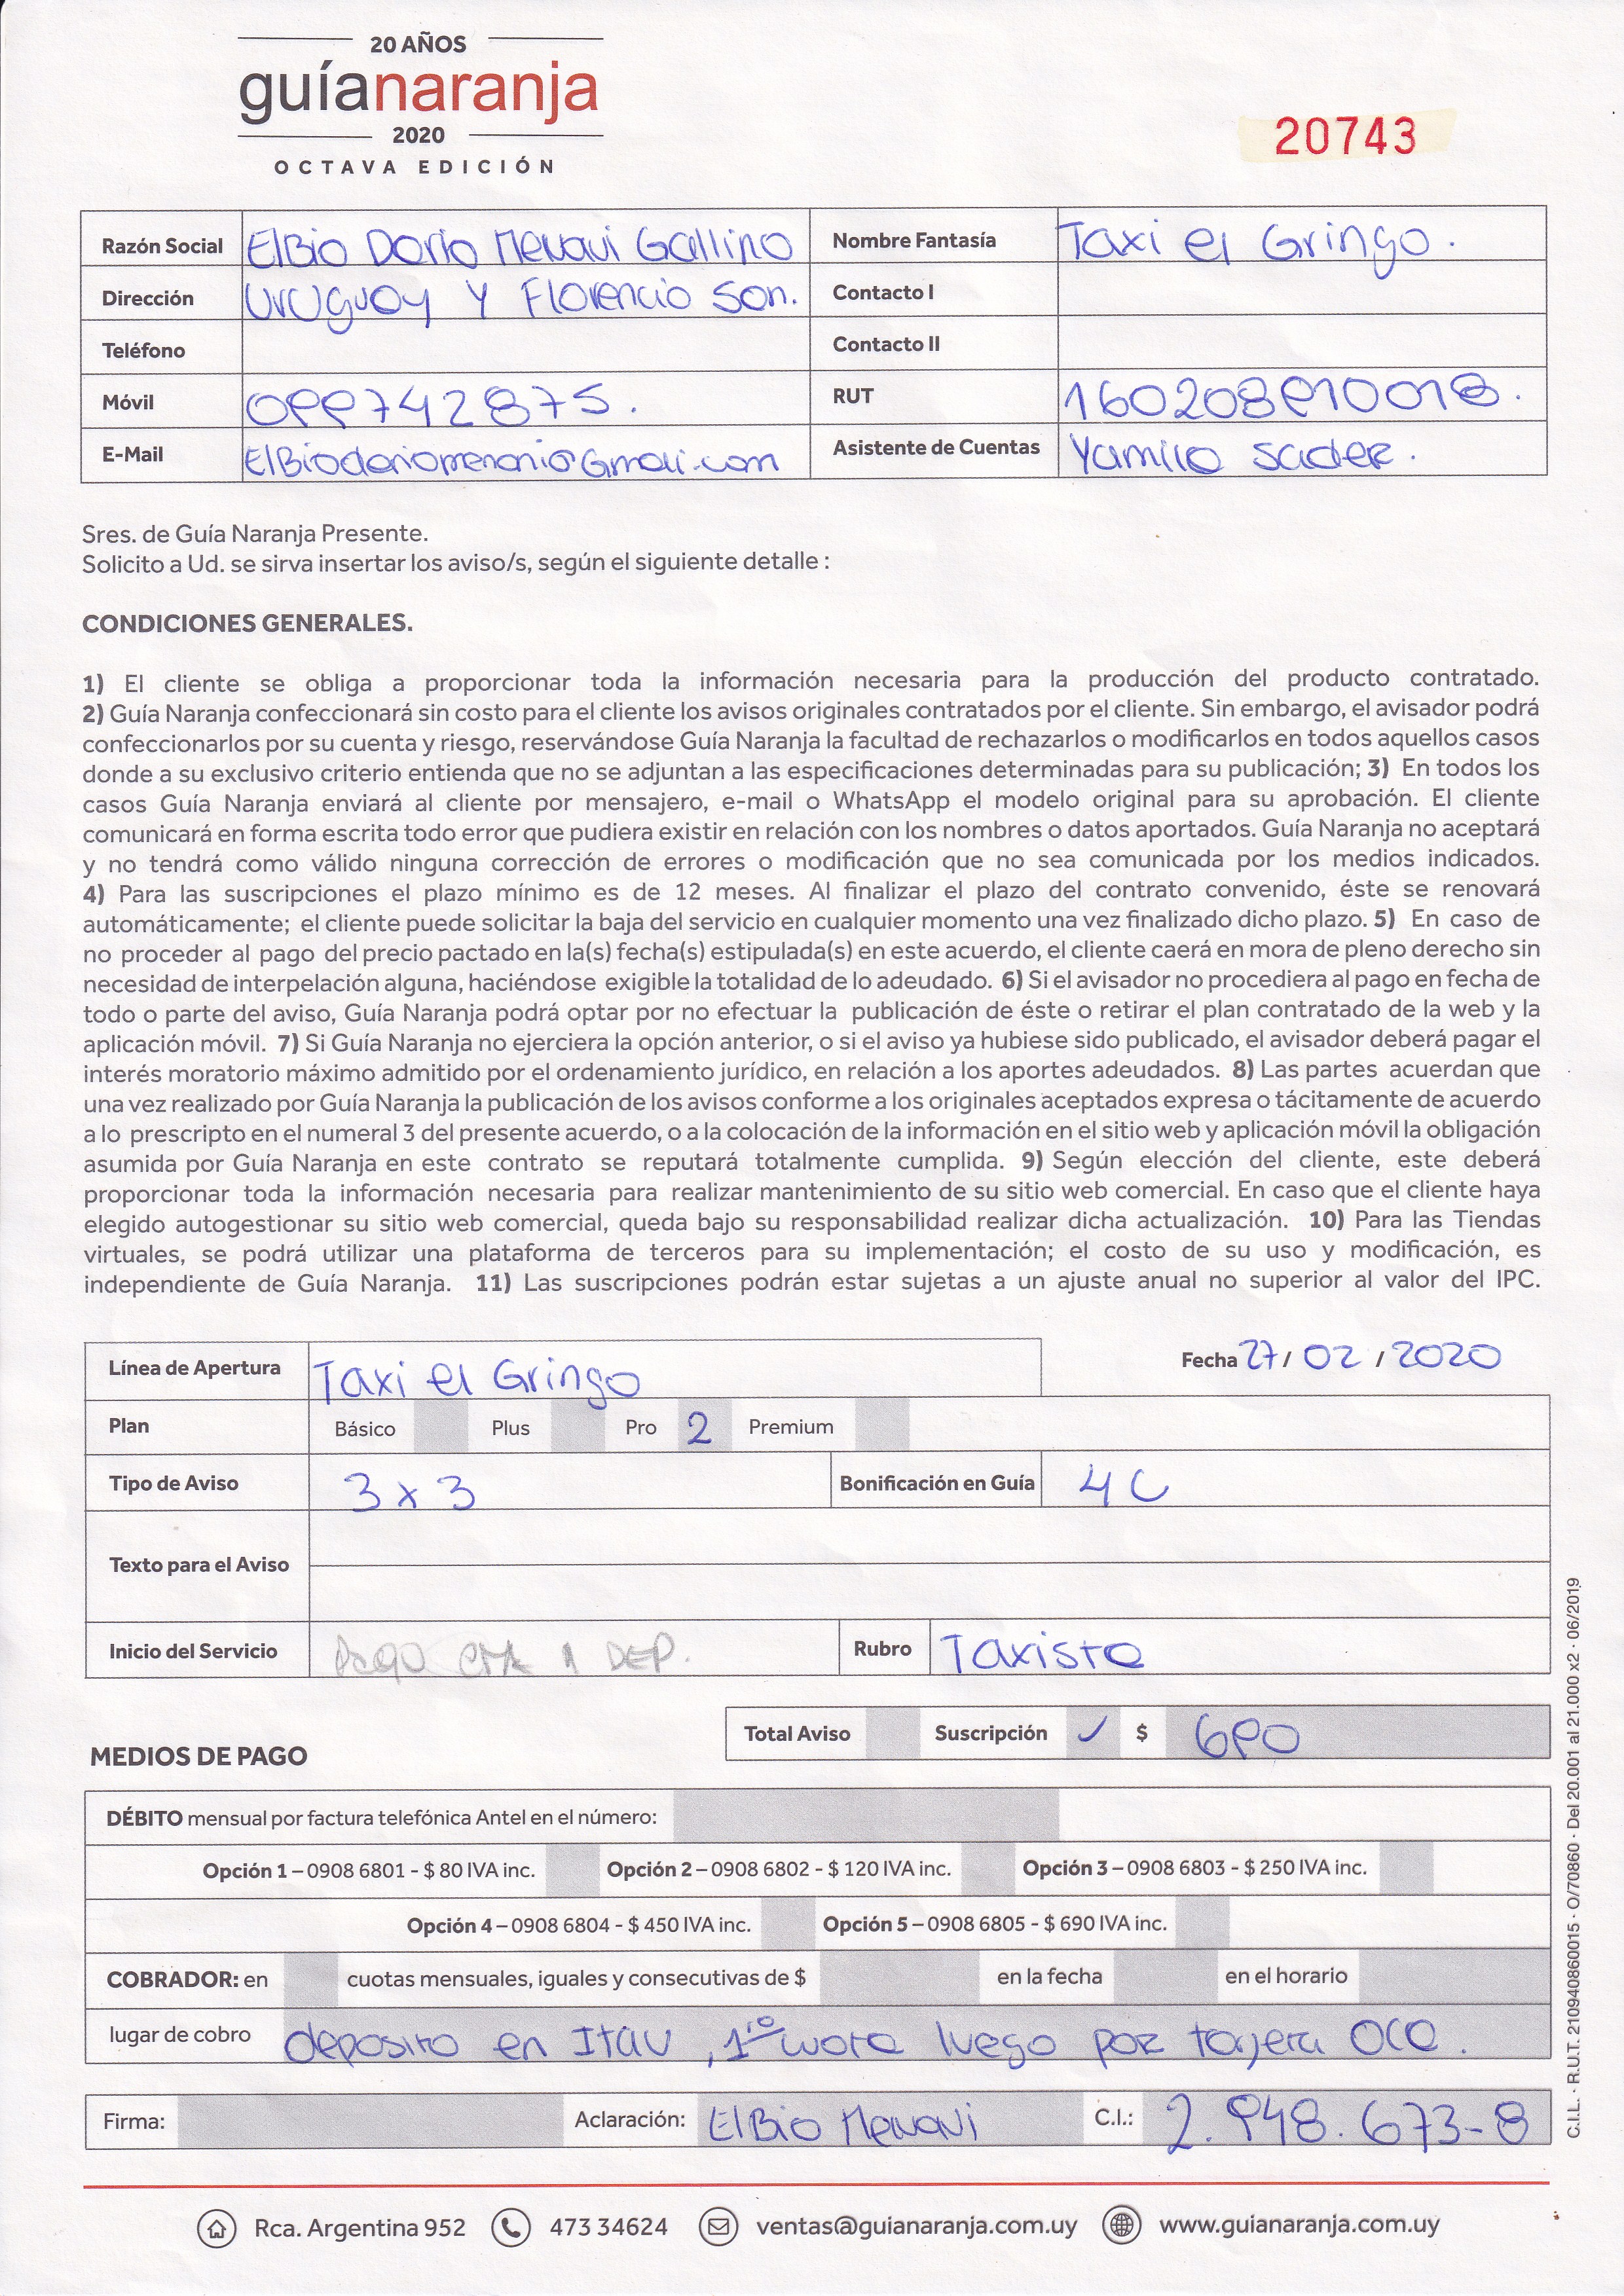 20 AÑOS
guíanaranja
2020
OCTAVA EDICIÓN
20743
Razón Social ElBio Dario Menoni Gallino Nombre Fantasía Taxi el Gringo.
Dirección Uruguay y Florencio San. Contacto I
Teléfono Contacto II
Móvil 099742875. RUT 160208910018.
E-Mail ElBiodariomenoni@Gmail.com Asistente de Cuentas Yamila Sader.
Sres. de Guía Naranja Presente.
Solicito a Ud. se sirva insertar los aviso/s, según el siguiente detalle :
CONDICIONES GENERALES.
1) El cliente se obliga a proporcionar toda la información necesaria para la producción del producto contratado.
2) Guía Naranja confeccionará sin costo para el cliente los avisos originales contratados por el cliente. Sin embargo, el avisador podrá
confeccionarlos por su cuenta y riesgo, reservándose Guía Naranja la facultad de rechazarlos o modificarlos en todos aquellos casos
donde a su exclusivo criterio entienda que no se adjuntan a las especificaciones determinadas para su publicación; 3) En todos los
casos Guía Naranja enviará al cliente por mensajero, e-mail o WhatsApp el modelo original para su aprobación. El cliente
comunicará en forma escrita todo error que pudiera existir en relación con los nombres o datos aportados. Guía Naranja no aceptará
y no tendrá como válido ninguna corrección de errores o modificación que no sea comunicada por los medios indicados.
4) Para las suscripciones el plazo mínimo es de 12 meses. Al finalizar el plazo del contrato convenido, éste se renovará
automáticamente; el cliente puede solicitar la baja del servicio en cualquier momento una vez finalizado dicho plazo. 5) En caso de
no proceder al pago del precio pactado en la(s) fecha(s) estipulada(s) en este acuerdo, el cliente caerá en mora de pleno derecho sin
necesidad de interpelación alguna, haciéndose exigible la totalidad de lo adeudado. 6) Si el avisador no procediera al pago en fecha de
todo o parte del aviso, Guía Naranja podrá optar por no efectuar la publicación de éste o retirar el plan contratado de la web y la
aplicación móvil. 7) Si Guía Naranja no ejerciera la opción anterior, o si el aviso ya hubiese sido publicado, el avisador deberá pagar el
interés moratorio máximo admitido por el ordenamiento jurídico, en relación a los aportes adeudados. 8) Las partes acuerdan que
una vez realizado por Guía Naranja la publicación de los avisos conforme a los originales aceptados expresa o tácitamente de acuerdo
a lo prescripto en el numeral 3 del presente acuerdo, o a la colocación de la información en el sitio web y aplicación móvil la obligación
asumida por Guía Naranja en este contrato se reputará totalmente cumplida. 9) Según elección del cliente, este deberá
proporcionar toda la información necesaria para realizar mantenimiento de su sitio web comercial. En caso que el cliente haya
elegido autogestionar su sitio web comercial, queda bajo su responsabilidad realizar dicha actualización. 10) Para las Tiendas
virtuales, se podrá utilizar una plataforma de terceros para su implementación; el costo de su uso y modificación, es
independiente de Guía Naranja. 11) Las suscripciones podrán estar sujetas a un ajuste anual no superior al valor del IPC.
Línea de Apertura Taxi el Gringo Fecha 27/ 02 / 2020
Plan Básico Plus Pro 2 Premium
Tipo de Aviso 3 x 3 Bonificación en Guía 4 C
Texto para el Aviso
Inicio del Servicio Pago 1 DEP. Rubro Taxista
Total Aviso Suscripción ✓ $ 690
MEDIOS DE PAGO
DÉBITO mensual por factura telefónica Antel en el número:
Opción 1 – 0908 6801 - $ 80 IVA inc. Opción 2 – 0908 6802 - $ 120 IVA inc. Opción 3 – 0908 6803 - $ 250 IVA inc.
Opción 4 – 0908 6804 - $ 450 IVA inc. Opción 5 – 0908 6805 - $ 690 IVA inc.
COBRADOR: en cuotas mensuales, iguales y consecutivas de $ en la fecha en el horario
lugar de cobro deposito en Itau, 1ra cuota luego por tarjeta OCA.
Firma: Aclaración: ElBio Menoni C.I.: 2.948.673-8
Rca. Argentina 952 473 34624 ventas@guianaranja.com.uy www.guianaranja.com.uy
C.I.L. · R.U.T. 210940860015 · O/70860 · Del 20.001 al 21.000 x2 · 06/2019